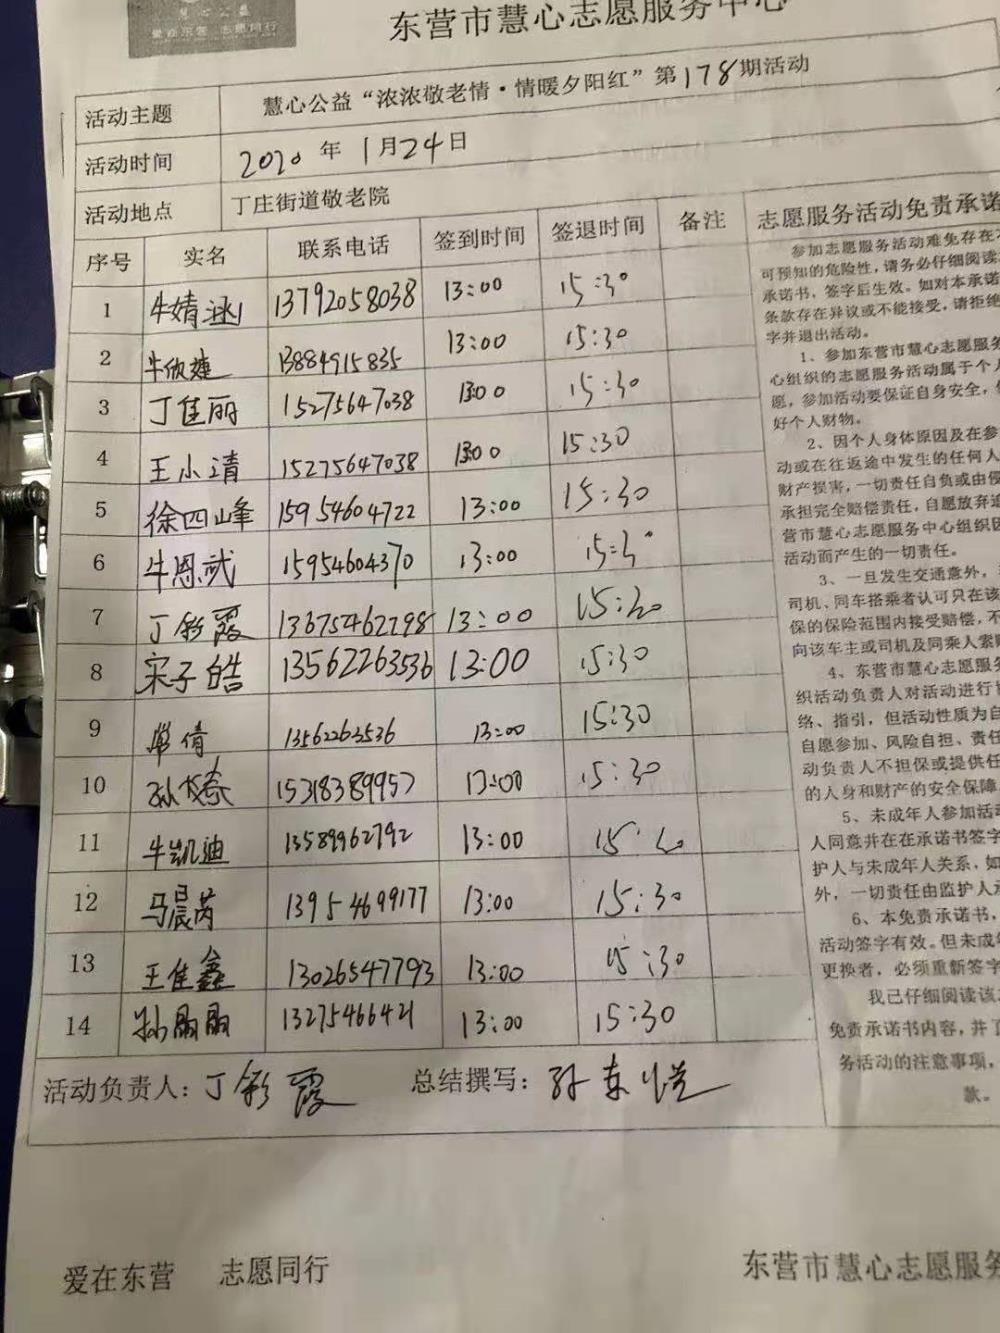 慧心公益
爱在东营 志愿同行
东营市慧心志愿服务中心
活动主题 慧心公益“浓浓敬老情·情暖夕阳红”第178期活动
活动时间 2020年1月24日
活动地点 丁庄街道敬老院
序号 实名 联系电话 签到时间 签退时间 备注
1 牛婧涵 13792058038 13:00 15:30
2 牛欣婕 13884915835 13:00 15:30
3 丁佳丽 15275647038 13:00 15:30
4 王小清 15275647038 13:00 15:30
5 徐四峰 15954604722 13:00 15:30
6 牛恩武 15954604370 13:00 15:30
7 丁彩霞 13675462298 13:00 15:30
8 宋子皓 13562263536 13:00 15:30
9 常倩 13562263536 13:00 15:30
10 15318389957 13:00 15:30
11 牛凯迪 13589962792 13:00
12 马晨芮 13954699177 13:00 15:30
13 王佳鑫 13026547793 13:00 15:30
14 孙晶晶 13275466421 13:00 15:30
活动负责人：丁彩霞 总结撰写：孙东
志愿服务活动免责承诺
参加志愿服务活动难免存在
可预知的危险性，请务必仔细阅读
承诺书，签字后生效。如对本承诺
条款存在异议或不能接受，请拒绝
字并退出活动。
1、参加东营市慧心志愿服务
心组织的志愿服务活动属于个人
愿，参加活动要保证自身安全，
好个人财物。
2、因个人身体原因及在参
动或在往返途中发生的任何人
财产损害，一切责任自负或由侵
承担完全赔偿责任，自愿放弃追
营市慧心志愿服务中心组织因
活动而产生的一切责任。
3、一旦发生交通意外，
司机、同车搭乘者认可只在该
保的保险范围内接受赔偿，不
向该车主或司机及同乘人索
4、东营市慧心志愿服务
织活动负责人对活动进行
络、指引，但活动性质为自
自愿参加、风险自担、责任
动负责人不担保或提供任
的人身和财产的安全保障
5、未成年人参加活动
人同意并在在承诺书签字
护人与未成年人关系，如
外，一切责任由监护人承
6、本免责承诺书，
活动签字有效。但未成年
更换者，必须重新签字
我已仔细阅读该
免责承诺书内容，并了
务活动的注意事项，
款。
爱在东营 志愿同行
东营市慧心志愿服务